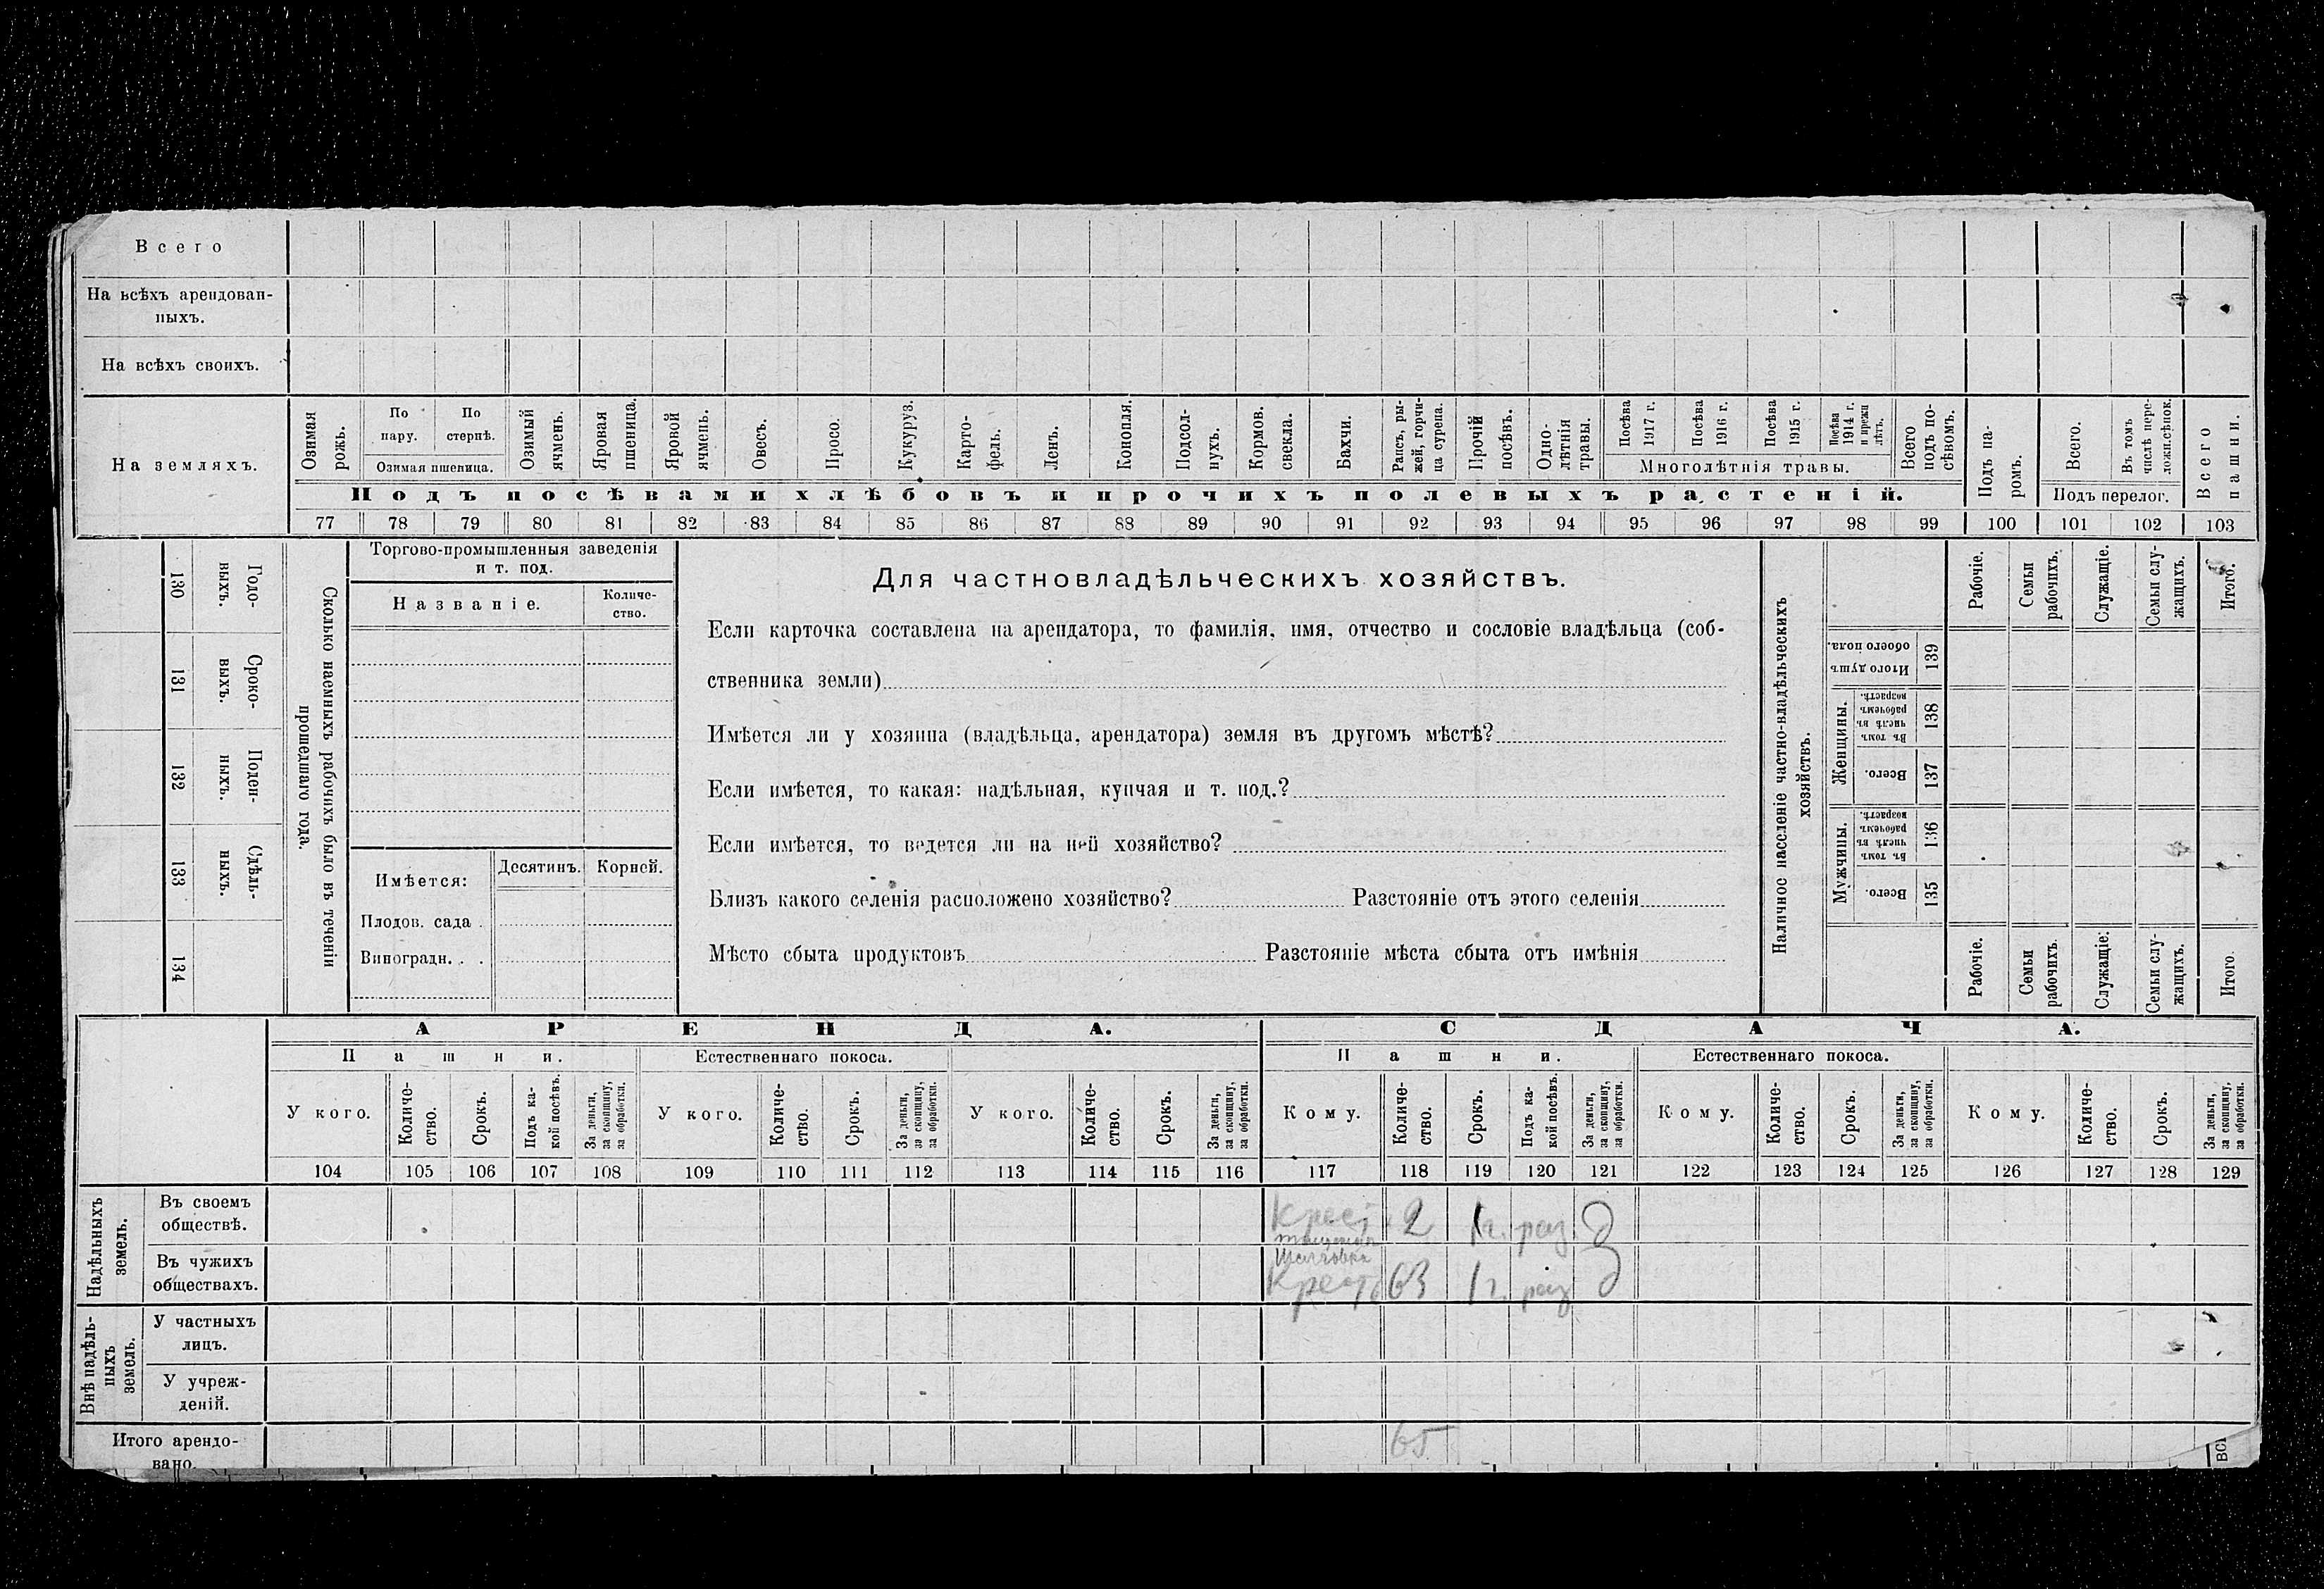 Всего
На всѣхъ арендован-
ныхъ.
На всѣхъ своихъ.
На земляхъ.
Озимая рожь.
По пару.
По стернѣ.
Озимая пшеница.
Озимый ячмень.
Яровая пшеница.
Яровой ячмень.
Овесъ.
Просо.
Кукуруз.
Карто-
фель.
Ленъ.
Конопля.
Подсол-
нухъ.
Кормов. свекла.
Бахчи.
Рапсъ, ры-
жей, горчи-
ца сурепа.
Прочій посѣвъ.
Одно-
лѣтнія травы.
Посѣва 1917 г.
Посѣва 1916 г.
Посѣва 1915 г.
Посѣва 1914 г. и прежн лѣтъ.
Многолѣтнія травы.
Всего подъ по-
сѣвомъ.
Подъ па-
ромъ.
Всего.
Въ томъ числѣ пере-
ложн.сѣнок.
Подъ перелог.
Всего пашни.
Подъ посѣвами хлѣбовъ и прочихъ полевыхъ растеній.
77 78 79 80 81 82 83 84 85 86 87 88 89 90 91 92 93 94 95 96 97 98 99 100 101 102 103
130 Годо-
выхъ.
131 Сроко-
выхъ.
132 Поден-
ныхъ.
133 Сдѣль-
ныхъ.
134
Сколько наемныхъ рабочихъ было въ теченіи
прошедшаго года.
Торгово-промышленныя заведенія
и т. под.
Названіе.
Количе-
ство.
Имѣется:
Десятинъ.
Корней.
Плодов. сада .
Виноградн. . .
Для частновладѣльческихъ хозяйствъ.
Если карточка составлена на арендатора, то фамилія, имя, отчество и сословіе владѣльца (соб-
ственника земли)
Имѣется ли у хозяина (владѣльца, арендатора) земля въ другомъ мѣстѣ?
Если имѣется, то какая: надѣльная, купчая и т. под.?
Если имѣется, то ведется ли на ней хозяйство?
Близъ какого селенія расположено хозяйство? Разстояніе отъ этого селенія
Мѣсто сбыта продуктовъ Разстояніе мѣста сбыта отъ имѣнія
Наличное населеніе частно-владѣльческихъ
хозяйствъ.
Рабочіе.
Семьи рабочихъ.
Служащіе.
Семьи слу-
жащихъ.
Итого.
Итого душъ обоего пола.
139
Женщины.
Въ томъ числѣ въ рабочемъ возрастѣ.
138
Всего.
137
Мужчины.
Въ томъ числѣ въ рабочемъ возрастѣ.
136
Всего.
135
Рабочіе.
Семьи рабочихъ.
Служащіе:
Семьи слу-
жащихъ.
Итого.
АРЕНДА.
СДАЧА.
Пашни.
Естественнаго покоса.
Пашни.
Естественнаго покоса.
У кого.
Количе-
ство.
Срокъ.
Подъ ка-
кой посѣвъ.
За деньги,
за скопщину,
за обработки.
У кого.
Количе-
ство.
Срокъ.
За деньги,
за скопщину,
за обработки.
У кого.
Количе-
ство.
Срокъ.
За деньги,
за скопщину,
за обработки.
Кому.
Количе-
ство.
Срокъ.
Подъ ка-
кой посѣвъ.
За деньги,
за скопщину,
за обработки.
Кому.
Количе-
ство.
Срокъ.
За деньги,
за скопщину,
за обработки.
Кому.
Количе-
ство.
Срокъ.
За деньги,
за скопщину,
за обработки.
104 105 106 107 108 109 110 111 112 113 114 115 116 117 118 119 120 121 122 123 124 125 126 127 128 129
Надѣльныхъ
земель.
Въ своемъ
обществѣ.
Крест 2 1г. раз. д
Въ чужихъ
обществахъ.
Крест 63 1г. раз д
Внѣ надѣль-
ныхъ
земель.
У частныхъ
лицъ.
У учреж-
деній.
Итого арендо-
вано.
65